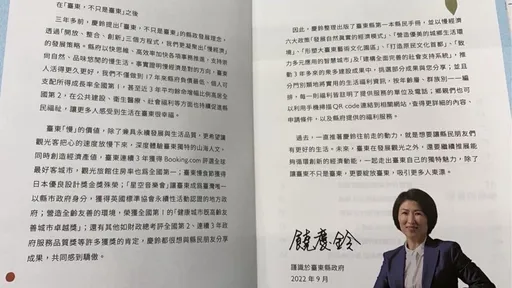 在「臺東，不只是臺東」之後
三年多前，慶鈴提出「臺東，不只是臺東」的縣政發展理念，
透過「開放、整合、創新」三個方程式，我們更凝聚出「慢經濟」
的發展策略。縣府以快思維、高效率加快各項事務推進，支持很
向自然、品味悠閒的慢生活。事實證明慢經濟是對的方向，臺東
人活得更久更好，我們不僅做到 17 年來縣府負債最低、個人可
支配所得成長率全國第 1，甚至近 3 年平均餘命增幅比例高居全
國第 2，在公共建設、衛生醫療、社會福利等方面也持續促進縣
民福祉，讓更多人感受到生活在臺東很幸福。
臺東「慢」的價值，除了兼具永續發展與生活品質，更希望讓
觀光客把心的速度放下來，深度體驗臺東獨特的山海人文，
同時創造經濟產值，臺東連續 3 年獲得 Booking.com 評選全年
最好客城市，觀光旅館住房率也爲全國第一；臺東慢食節獲得
日本優良設計獎金獎殊榮；「星空音樂會」讓臺東成爲臺灣唯一
以縣市政府身分，獲得英國標準協會永續性活動認證的地方政
府；營造全齡友善的環境，榮獲全國第 1 的「健康城市既高齡友
善城市卓越獎」；還有其他如財政總考評全國第 2、連續 3 年政
府服務品質獎等許多獲獎的肯定，慶鈴都很想與縣民朋友分享
成果，共同感到驕傲。
因此，慶鈴整理出版了臺東縣第一本縣民手冊，並以慢經濟
六大政策「發展自然真實的經濟模式」、「營造優美的城鄉生活環
境」、「形塑大臺東藝術文化園區」、「打造原民文化首都」、「致
力多元應用的智慧城市」及「建構全面完善的社會支持系統」，推
動 3 年多來的眾多建設成果中，挑選部分成果與您分享；並且
分門別類地將實用的生活福利資訊，按年齡層、群族別一一編
排，每一則福利皆註明了提供服務的單位及電話；鄉親們也可
以利用手機掃描 QR code 連結到相關網站，查得更詳細的內容、
申請條件，以及縣府提供的福利服務。
過去，一直推著慶鈴往前走的動力，就是想要讓縣民朋友們
有更好的生活。未來，臺東在發展觀光之外，還要繼續推展能
夠循環創新的經濟動能，一起走出臺東自己的獨特魅力，除了
讓臺東不只是臺東，更要綻放臺東，吸引更多人東漂。
饒慶鈴
謹識於臺東縣政府
2022 年 9 月